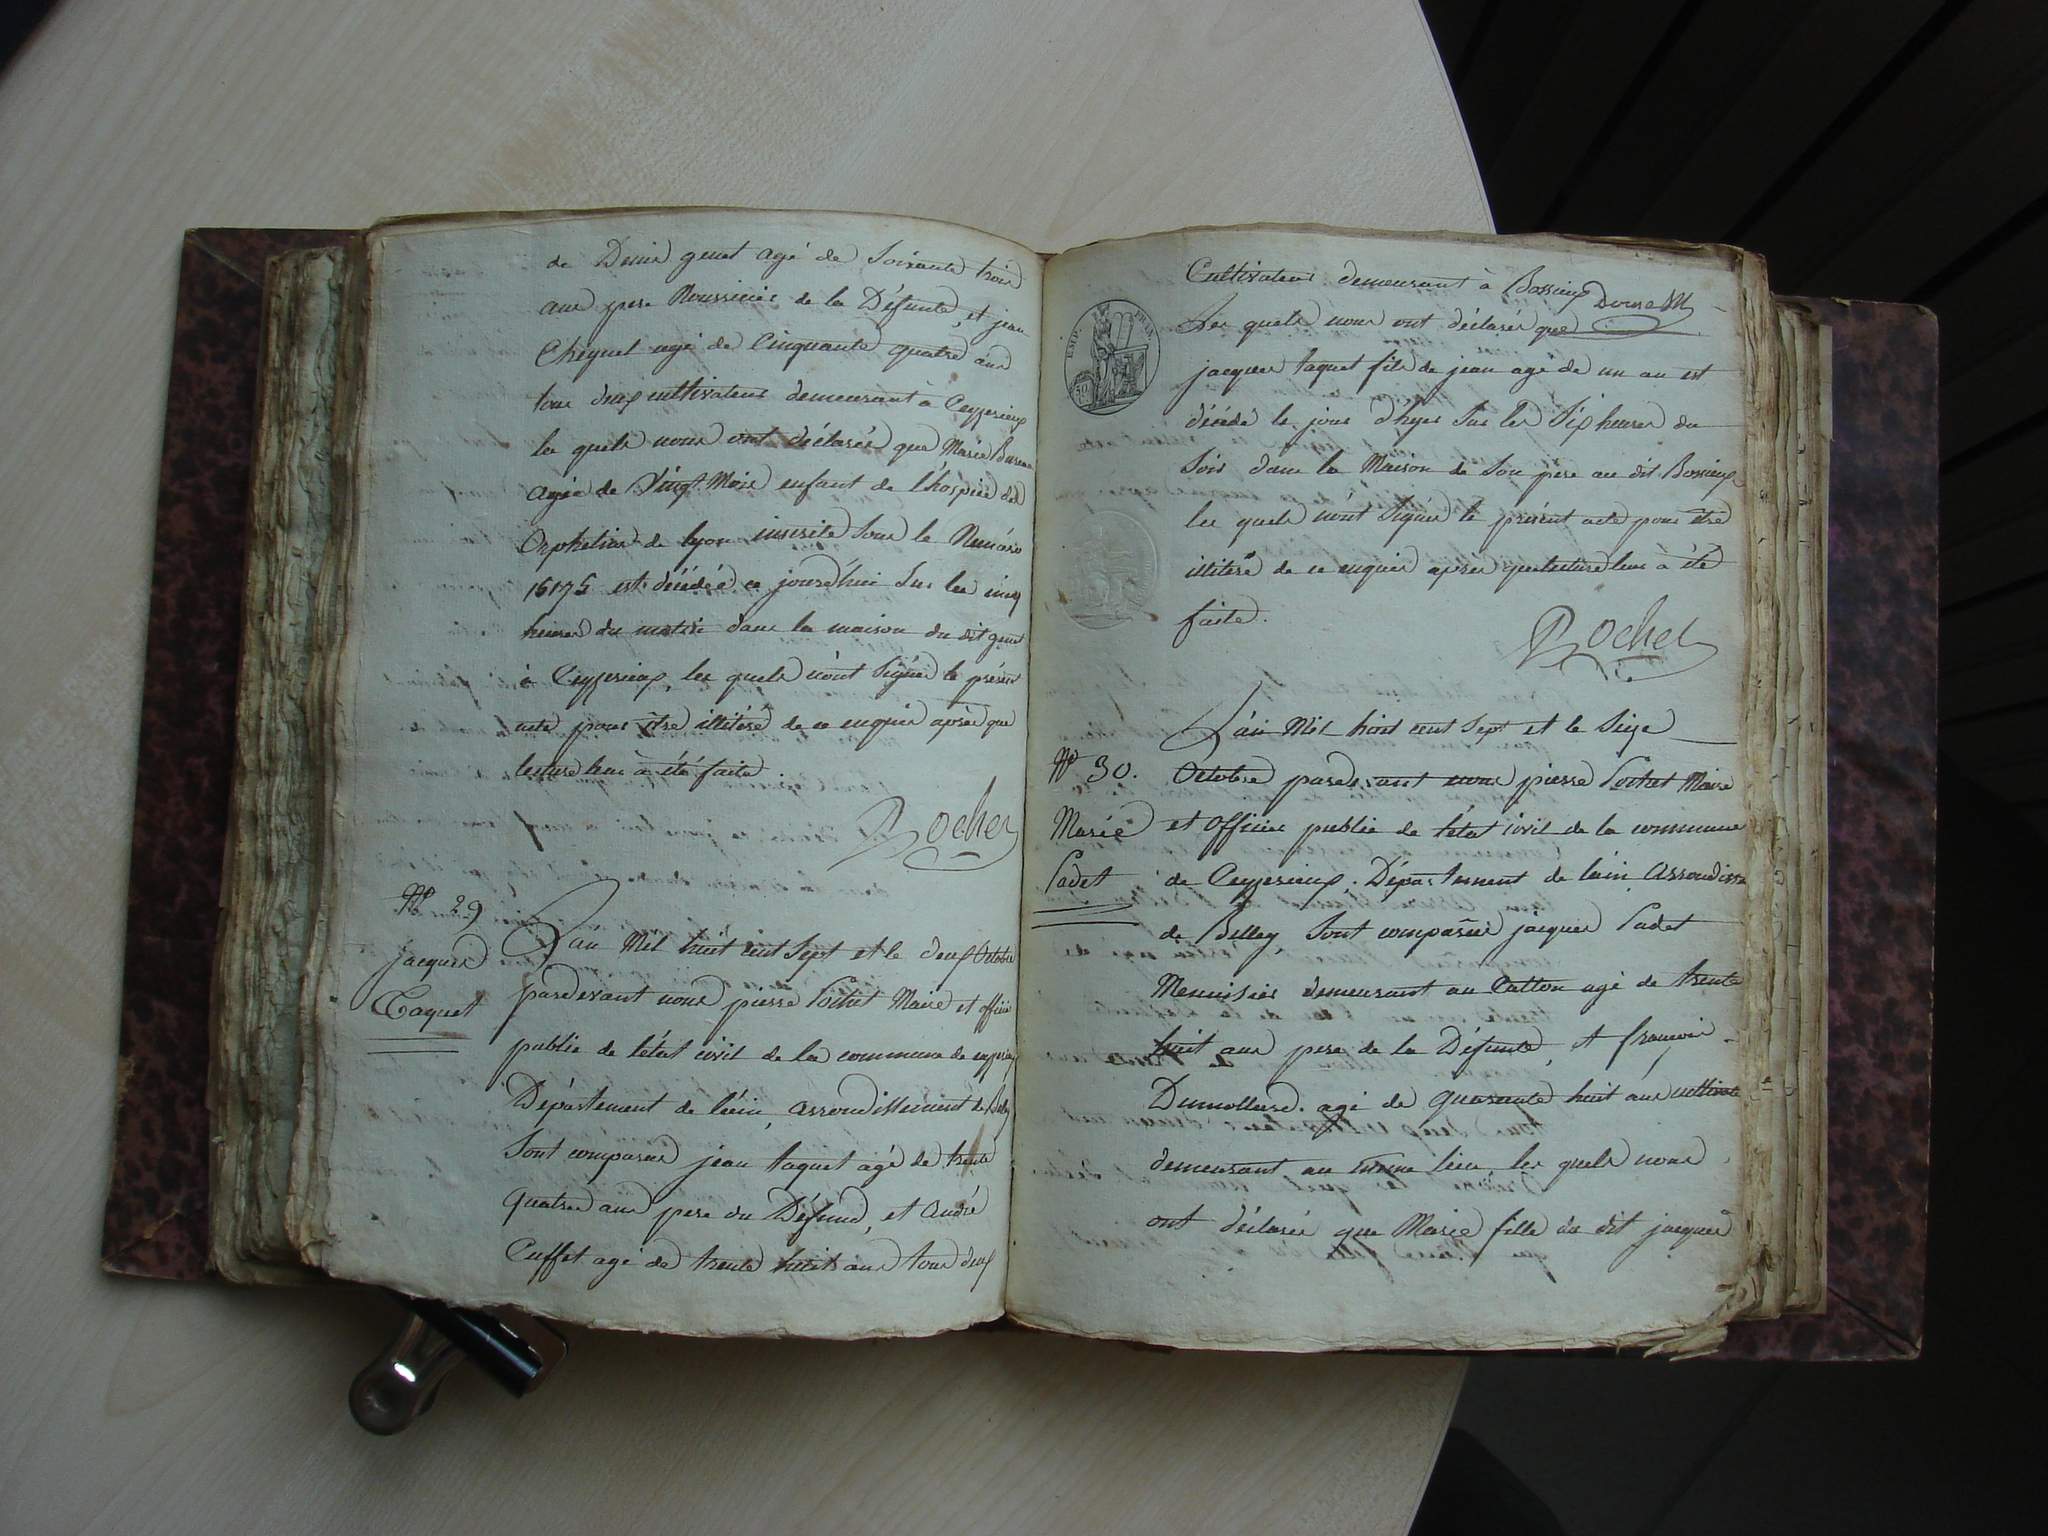 de Denis genet agé de Soixante trois
ans pere Nourricier de la Défunte, et jean
Cheynel agé de Cinquante quatre ans
tous deux cultivateurs demeurant à Ceyzerieux
les quels nous ont déclarés que Marie
agée de Vingt Mois enfant de l'hospice des
Orphelins de lyon inscrite Sous le Numéro
16175 est décédée ce jourd'hui Sur les cinq
heures du matin dans la maison du dit genet
à Ceyzerieux, les quels n'ont Signés le présent
acte pour être illitéré de ce enquis après que
lecture leur à été faite.
Rochet
N° 29
Jacques
Taquet
L'an Mil huit cent Sept et le deux Octobre
pardevant nous pierre Rochet Maire et officier
public de l'état civil de la commune de ceyzerieux
Département de l'ain, arrondissement de Belley
Sont comparus jean taquet agé de trente
quatre ans pere du Défund, et André
Cuffet agé de trente huit ans tous deux
Cultivateurs demeurant à Bossieux
EMP. FRAN.
Les quels nous ont déclarés que
jacques taquet fils de jean agé de un an est
décédé le jour d'hyer Sur les Six heures du
Soir dans la Maison de Son pere au dit Bossieux
les quels n'ont Signés le présent acte pour être
illitéré de ce enquis après que lecture leur à été
faite.
Rochet
L'an Mil huit cent Sept et le Seize
N° 30.
Marie
Cadet
Octobre pardevant nous pierre Rochet Maire
et officier public de l'état civil de la commune
de Ceyzerieux, Département de l'ain arrondisse
de Belley, Sont comparus jacques Cadet
Menuisier demeurant au Catton agé de trente
huit ans pere de la Défunte, et françois
Dumollard agé de quarante huit ans cultivate
demeurant au même lieu, les quels nous
ont déclarés que Marie fille du dit jacques